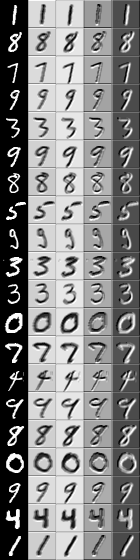 1 1 1 1 1
8 8 8 8 8
7 7 7 7 7
9 9 9 9 9
3 3 3 3 3
9 9 9 9 9
8 8 8 8 8
5 5 5 5 5
9 9 9 9 9
3 3 3 3 3
3 3 3 3 3
0 0 0 0 0
7 7 7 7 7
4 4 4 4 4
9 9 9 9 9
8 8 8 8 8
0 0 0 0 0
9 9 9 9 9
4 4 4 4 4
1 1 1 1 1